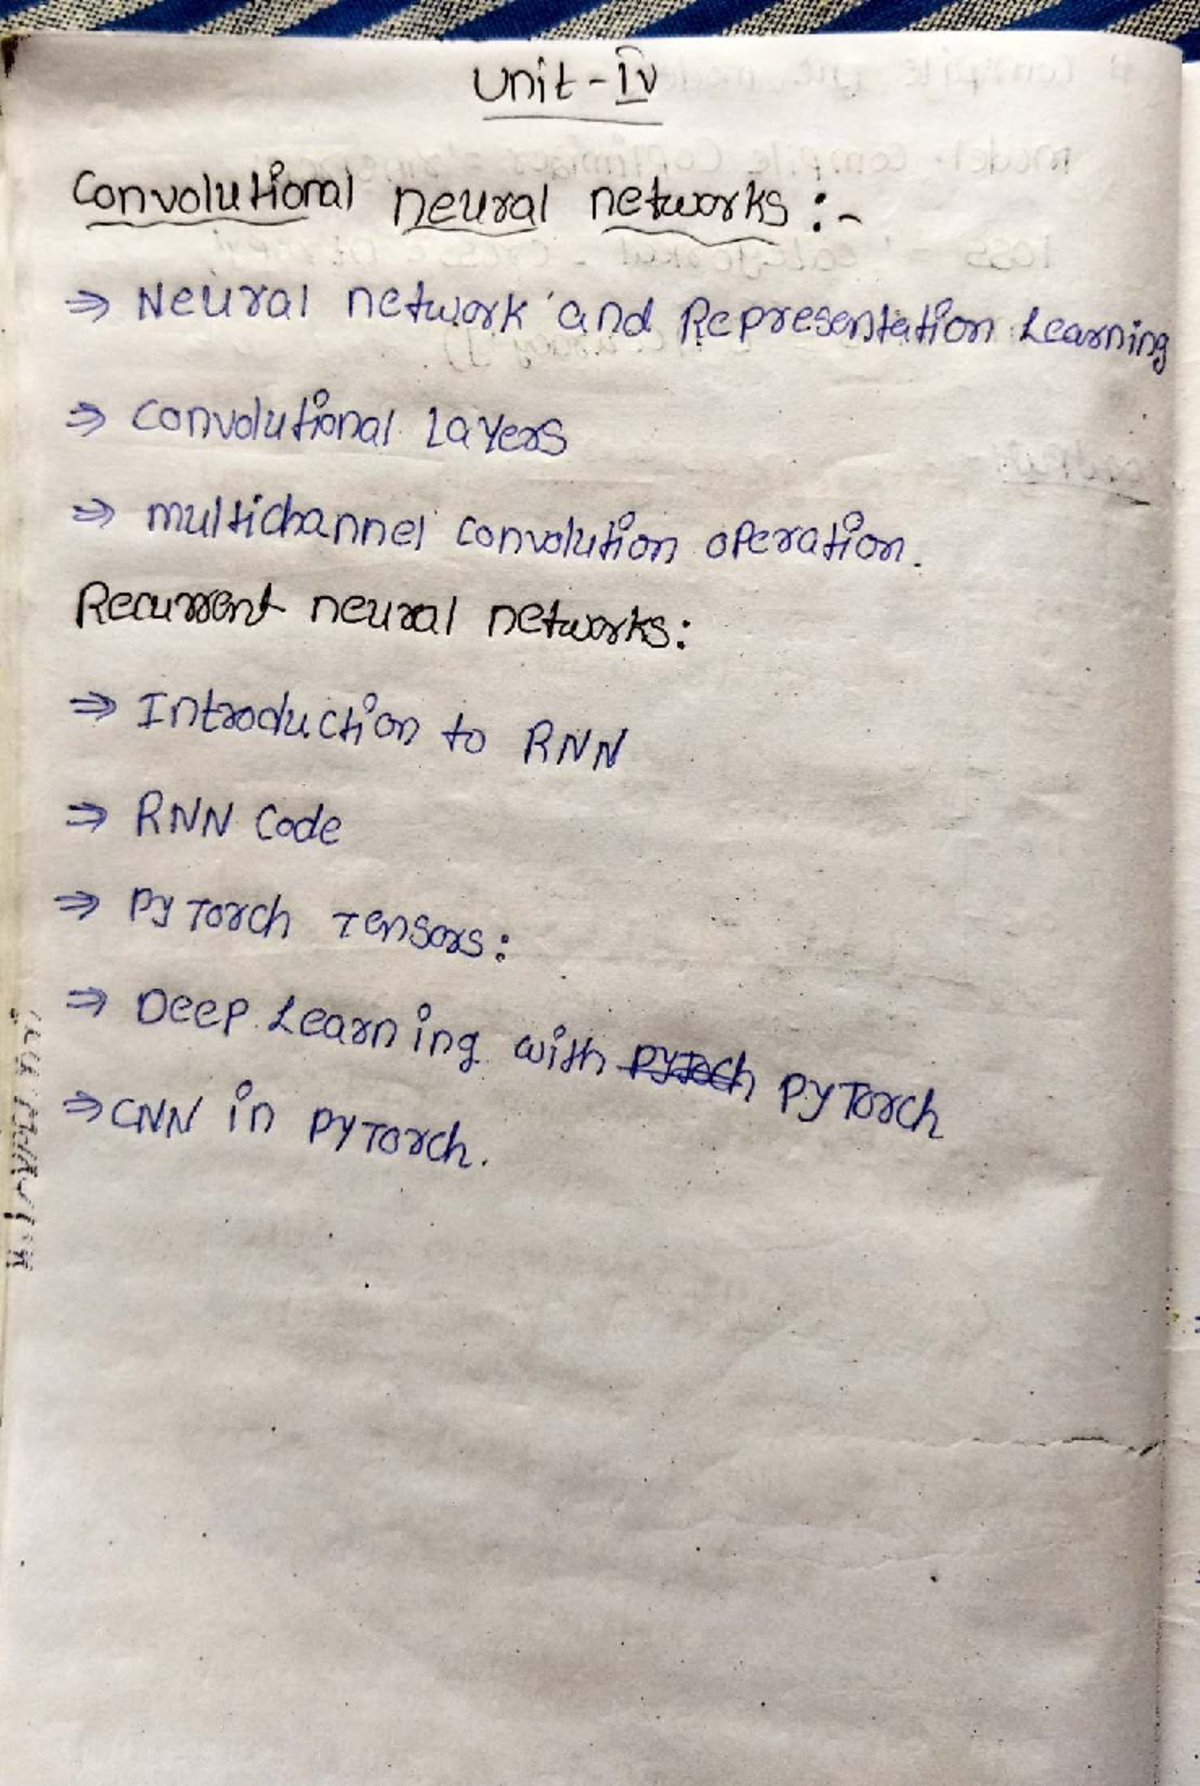 Unit-IV
Convolutional neural networks:-
⇒ Neural network and Representation Learning
⇒ Convolutional Layers
⇒ multichannel convolution operation.
Recurrent neural networks:
⇒ Introduction to RNN
⇒ RNN Code
⇒ PyTorch Tensors:
⇒ Deep Learning with PyTorch
⇒ CNN in PyTorch.